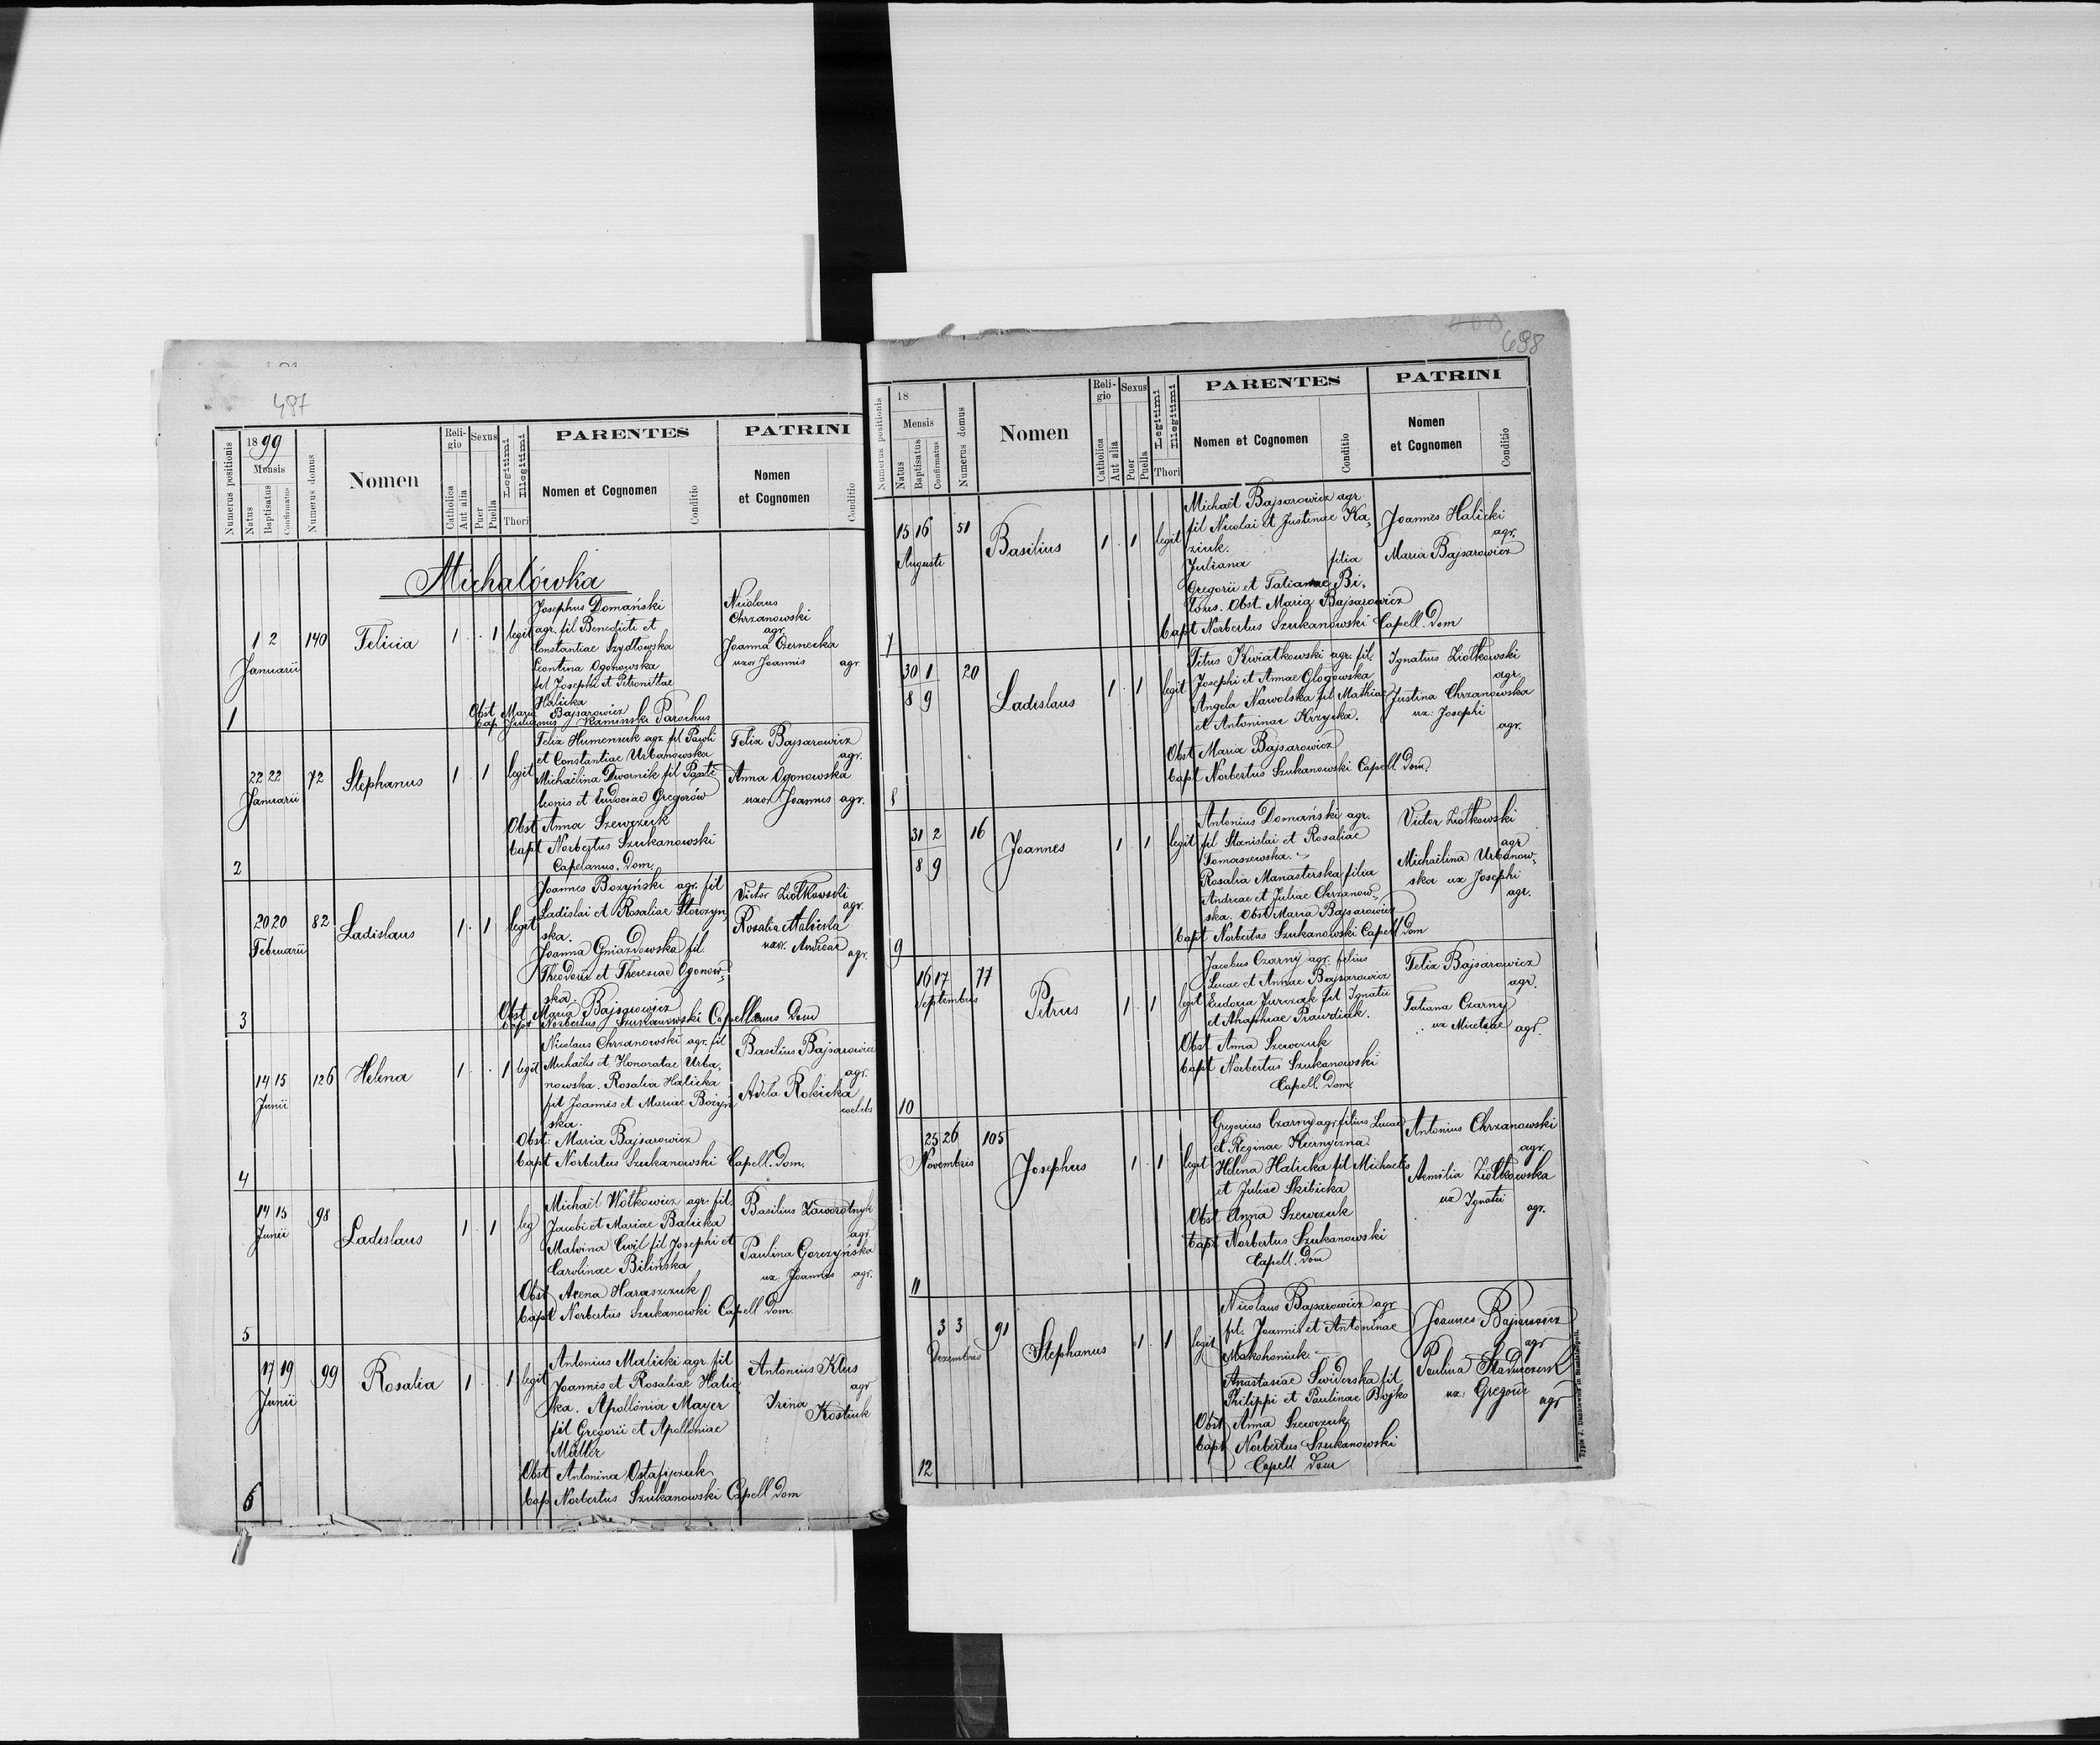 497
Numerus positionis
1899
Mensis
Natus
Baptisatus
Confirmatus
Numerus domus
Nomen
Reli-
gio
Catholica
Aut alia
Sexus
Puer
Puella
Legitimi
Illegitimi
Thori
PARENTES
Nomen et Cognomen
Conditio
PATRINI
Nomen
et Cognomen
Conditio
Michałówka
1 2
Januarii
140
Felicia
1
1
legit
Josephus Domański
agr. fil Benedicti et
Constantiae Szydłowska
Leontina Ogonowska
fil Josephi et Petronillae
Halicka
Obst Maria Bajsarowicz
Bap Julianus Kaminski Parochus
Nicolaus
Chrzanowski
agr.
Joanna Czernecka
uxor Joannis agr
1
22 22
Januarii
72
Stephanus
1
1
legit
Felix Humenzuk agr fil Pawli
et Constantiae Urbanowska
Michaëlina Dwornik fil Pante
leonis et Eudociae Gregorów
Obst Anna Szewczuk
Bapt Norbertus Szukanowski
Capelanus. Dom.
Felix Bajsarowicz
agr.
Anna Ogonowska
uxor Joannis agr.
2
20 20
Februarii
82
Ladislaus
1
1
legit
Joannes Bozyński agr. fil
Ladislai et Rosaliae Storozyn,
ska.
Joanna Gniazdowska fil
Theodori et Theresiae Ogonow,
ska.
Obst Maria Bajsarowicz
Bapt Norbertus Szukanowski Capellanus Dom
Victor Ziółkowski
agr.
Rosalia Malicka
uxor. Andreae
agr.
3
14 15
Junii
126
Helena
1
1
legit
Nicolaus Chrzanowski agr. fil
Michaëlis et Honoratae Urba,
nowska. Rosalia Halicka
fil Joannis et Mariae Bożyń
ska.
Obst: Maria Bajsarowicz
Bapt Norbertus Szukanowski Capell. Dom.
Basilius Bajsarowicz
agr.
Adela Rokicka
coelebs
4
14 15
Junii
98
Ladislaus
1
1
leg
Michaël Wołkowicz agr. fil.
Jacobi et Mariae Balicka
Malvina Cwil fil Josephi et
Carolinae Bilińska
Obst Arena Haraszczuk
Bapt Norbertus Szukanowski Capell Dom.
Basilius Zaworotnyk
agr
Paulina Gorczyńska
ux. Joannis agr.
5
17 19
Junii
99
Rosalia
1
1
legit
Antonius Malicki agr. fil
Joannis et Rosaliae Halic
ka. Apollonia Mayer
fil Gregorii et Apolloniae
Müller
Obst Antonina Ostafijczuk
Bap Norbertus Szukanowski Capell Dom
Antonius Klus
agr
Irina
Kostiuk
6
698
Numerus positionis
18
Mensis
Natus
Baptisatus
Confirmatus
Numerus domus
Nomen
Reli-
gio
Catholica
Aut alia
Sexus
Puer
Puella
Legitimi
Illegitimi
Thori
PARENTES
Nomen et Cognomen
Conditio
PATRINI
Nomen
et Cognomen
Conditio
15 16
Augusti
51
Basilius
1
1
legit
Michaël Bajsarowicz agr
fil Nicolai et Justinae Ka,
ziuk.
Juliana filia
Gregorii et Tatianae Bi,
lous. Obst. Maria Bajsarowicz
Bapt Norbertus Szukanowski Capell. Dom
Joannes Halicki
agr.
Maria Bajsarowicz
7
30 1
8 9
20
Ladislaus
1
1
legit
Titus Kwiatkowski agr. fil.
Josephi et Annae Głogowska
Angela Nawolska fil Mathiae
et Antoninae Krzycka.
Obst Maria Bajsarowicz
Bapt Norbertus Szukanowski Capell. Dom.
Ignatius Ziółkowski
agr.
Justina Chrzanowska
ux: Josephi
agr.
8
31 2
8 9
16
Joannes
1
1
legit
Antonius Domański agr.
fil Stanislai et Rosaliae
Tomaszewska.
Rosalia Manasterska filia
Andreae et Juliae Chrzanow,
ska. Obst Maria Bajsarowicz
Bapt Norbertus Szukanowski Capell Dom
Victor Ziółkowski
agr
Michaëlina Urbanow,
ska ux Josephi
agr.
9
16 17
Septembris
77
Petrus
1
1
legit
Jacobus Czarny agr. filius
Lucae et Annae Bajsarowicz
Eudoxia Jurczak fil Ignatii
et Ahaphiae Prawdiak.
Obst Anna Szewczuk
Bapt Norbertus Szukanowski
Capell. Dom.
Felix Bajsarowicz
agr.
Tatiana Czarny
ux Nicetae agr.
10
25 26
Novembris
105
Josephus
1
1
legit
Gregorius Czarny agr filius Lucae
et Reginae Kiernyczna
Helena Halicka fil Michaelis
et Juliae Skibicka
Obst Anna Szewczuk
Bapt Norbertus Szukanowski
Capell. Dom
Antonius Chrzanowski
agr.
Aemilia Ziółkowska
ux Ignatii
agr.
11
3 3
Dezembris
91
Stephanus
1
1
legit
Nicolaus Bajsarowicz agr
fil. Joannis et Antoninae
Makohoniuk.
Anastasiae Swiderska fil
Philippi et Paulinae Bojko
Obst Anna Szewczuk
Bapt Norbertus Szukanowski
Capell Dom
Joannes Bajsarowicz
agr
Paulina
ux: Gregorii
agr
12
Typis J. Dankiewicz in Stanislaopoli.